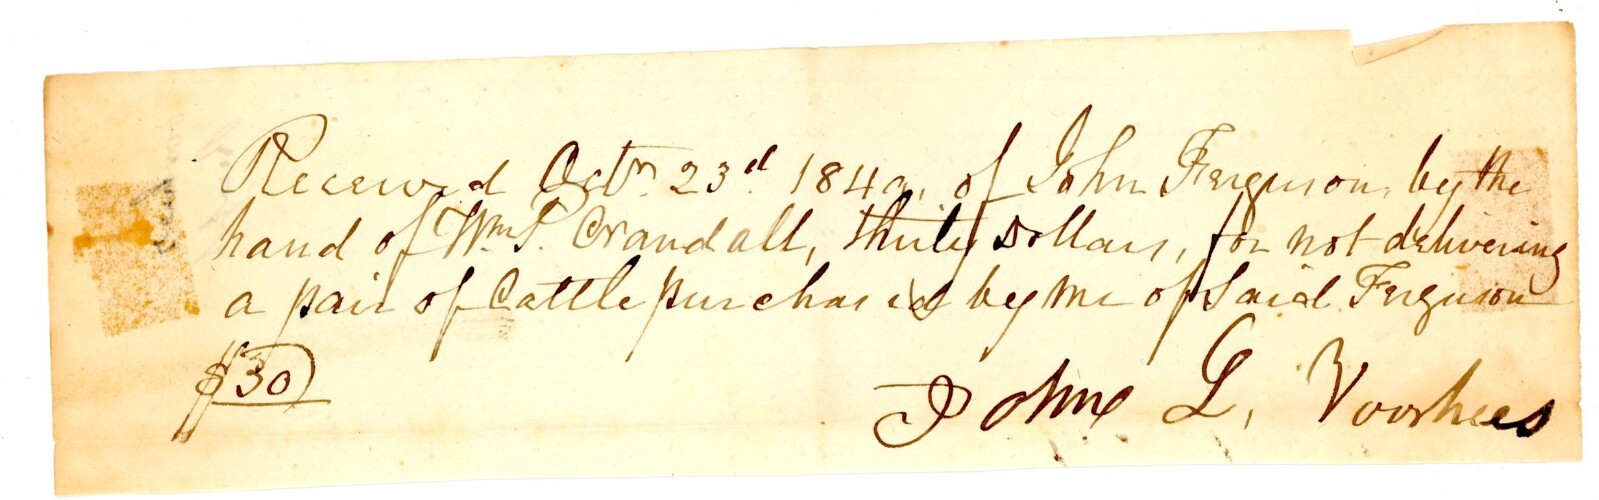 Received Octr. 23d. 1840, of John Ferguson, by the
hand of Wm. P. Crandall, thirty Dollars, for not delivering
a pair of Cattle purchased by me of Said Ferguson
$30
John L. Voorhees